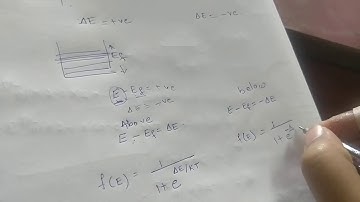 ΔE = +ve
ΔE = -ve
Ef
E - Ef = +ve
ΔE = -ve
Above
E - Ef = ΔE
below
E - Ef = -ΔE
f(E) = 1 / 1 + e^ΔE/KT
f(E) = 1 / 1 + e^-